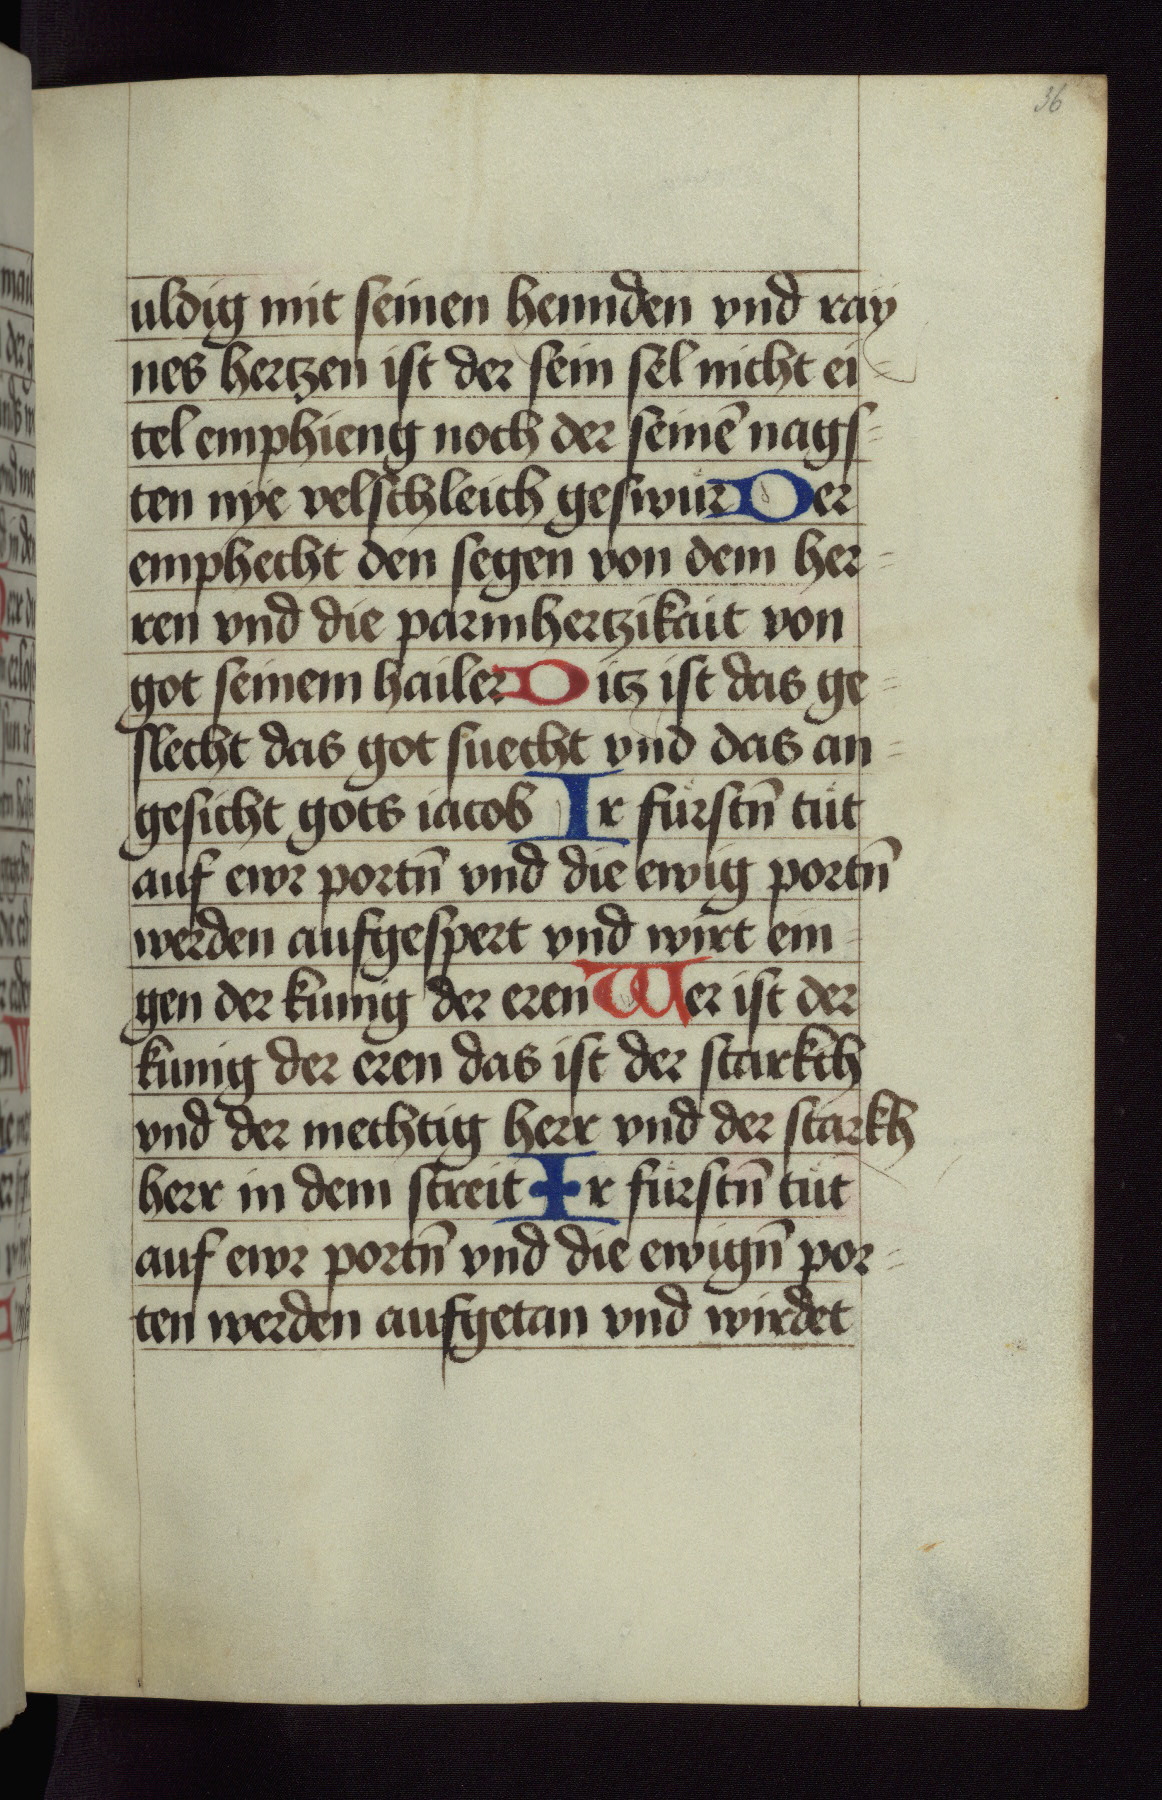 36
uldig mit seinen hennden vnd ray
nes hertzen ist der sein sel nicht ei-
tel emphieng noch der seinē nags-
ten nye velschleich geswůr Der
emphecht den segen von dem her-
ren vnd die parmhertzikait von
got seinem hailer Ditz ist das ge-
slecht das got suecht vnd das an-
gesicht gots iacob Ir fürstn̄ tůt
auf ewr portn̄ vnd die ewig portn̄
werden aufgespert vnd wirt ein-
gen der kunig der eren Wer ist der
kunig der eren das ist der starkch
vnd der mechtig herr vnd der starkh
herr in dem streit Ir fürstn̄ tůt
auf ewr portn̄ vnd die ewign̄ por-
ten werden aufgetan vnd wirdet